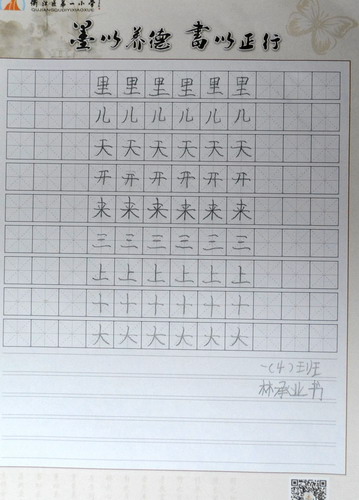 衢江区第一小学
QUJIANGQUDIYIXIAOXUE
墨以养德 書以正行
里里里里里里
儿儿儿儿儿几
天天天天天天
开开开开开开
来来来来来来
三三三三三三
上上上上上上
十十十十十十
大大大大大大
一(4)班
林承业书